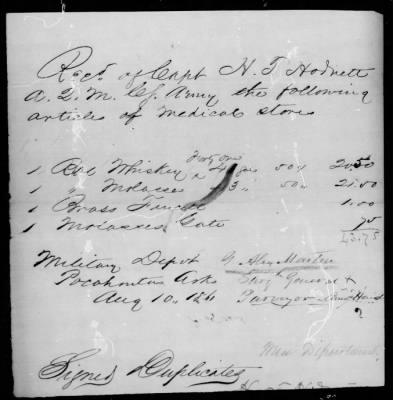 Recd of Capt H. T. Hodnett
A. Q. M. C.S. Army the following
articles of Medical stores
Forty one
1 Bbl Whiskey 41 gals 50¢ 20.50
1 " Molasses 43 " 50" 21.50
1 Brass Faucet 1.00
1 Molasses Gate 75
43.75
Military Depot G. Alex Martin
Pocahontas Arks Surg General &
Aug 10, 1861 Purveyor
War Department
Signed Duplicates